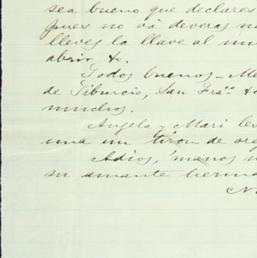 sea bueno que declares
pues no vá deveras
lleves la llave al
abrir &c.
Todos buenos_
de Tiburcio, San Fra^co
muchos.
Angela y Mari les
una un tiron de
Adios, manos
su amante